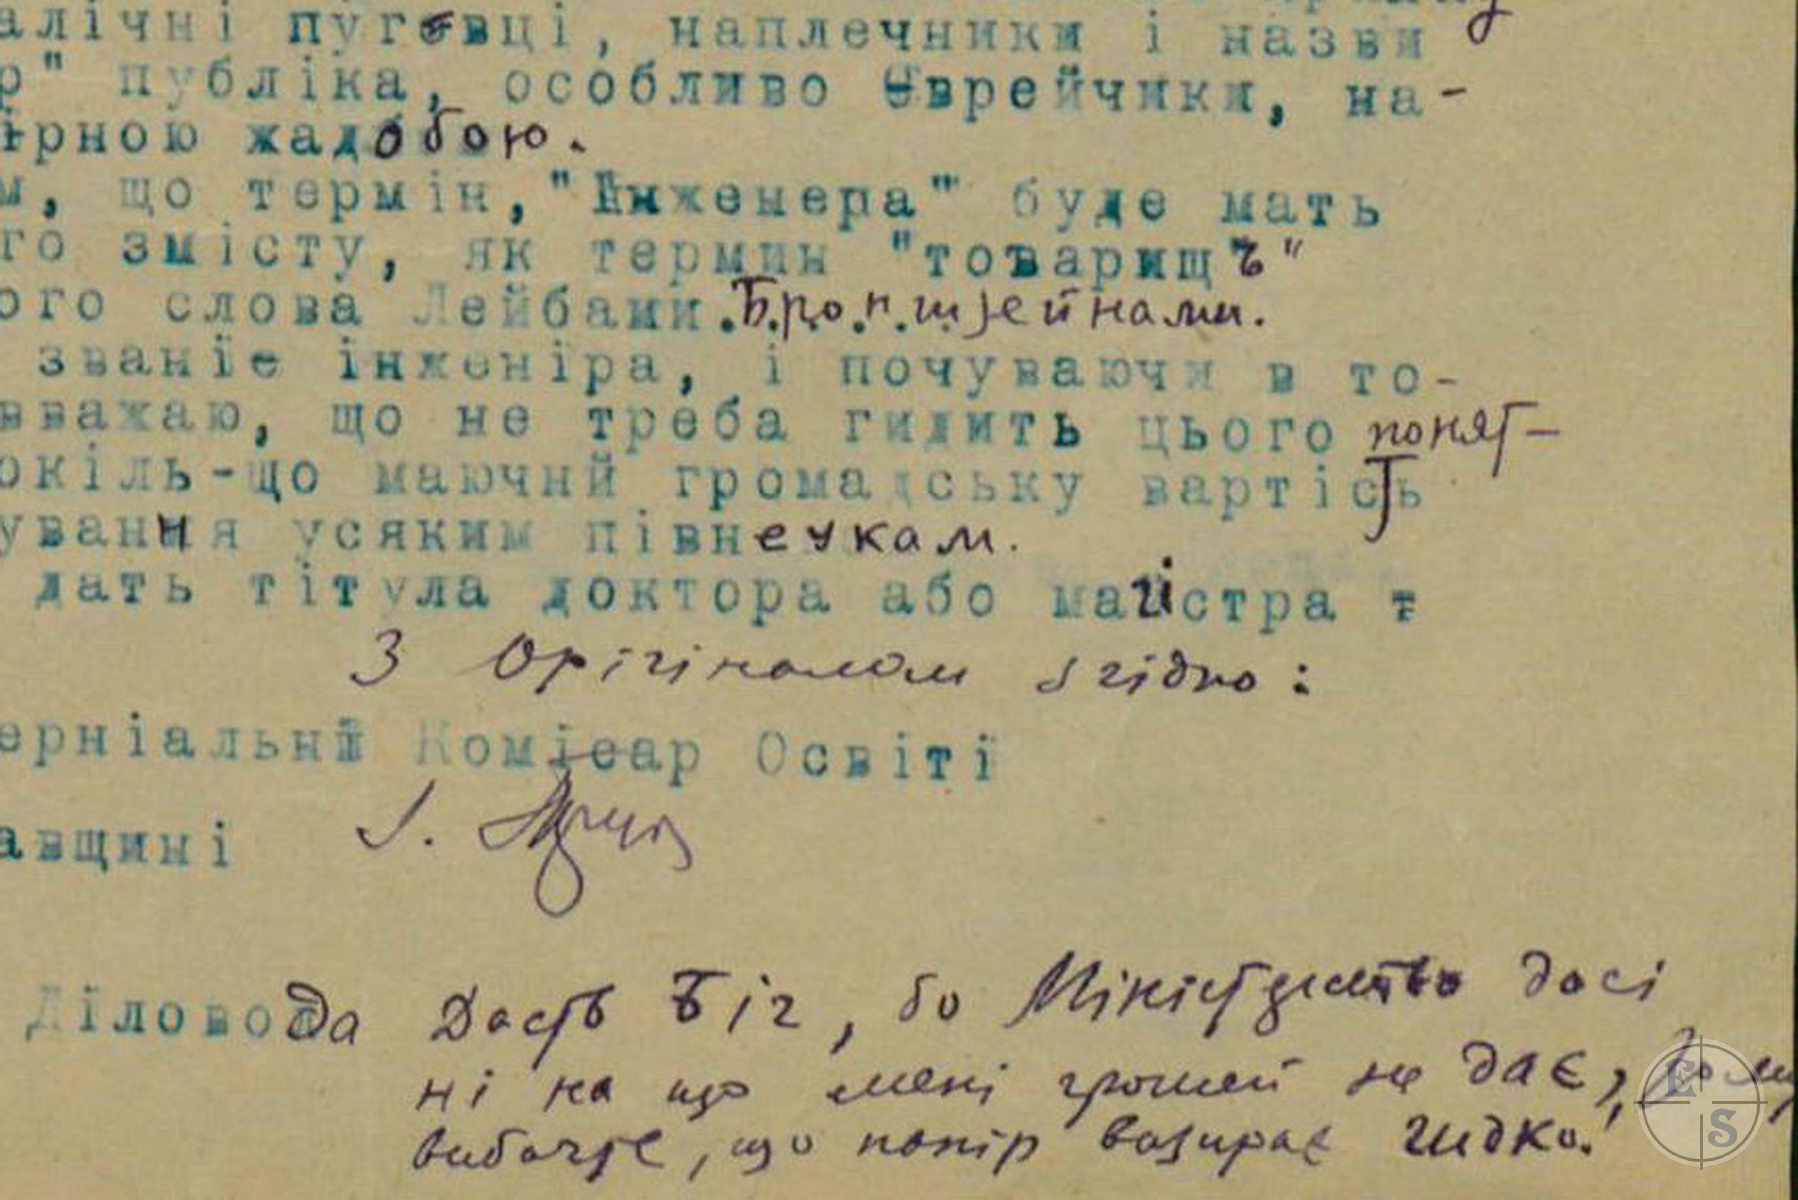 алічні пугевці, наплечники і назви
р" публіка, особливо Єврейчики, на-
ірною жадобою.
м, що термін, "Інженера" буде мать
го змісту, як термин "товарищъ"
ого слова Лейбами Бронштейнами.
званіє інженіра, і почуваючи в то-
вважаю, що не треба гидить цього понят-
окіль-що маючий громадську вартість
ування усяким півнеукам.
дать тітула доктора або магістра
З Орігіналом згідно:
ерніальний Комісар Освіті
авщині
Діловода Дасть Біг, бо Міністерство досі
ні на що мені грошей не дає, тому
вибачте, що папір гидко.
E S